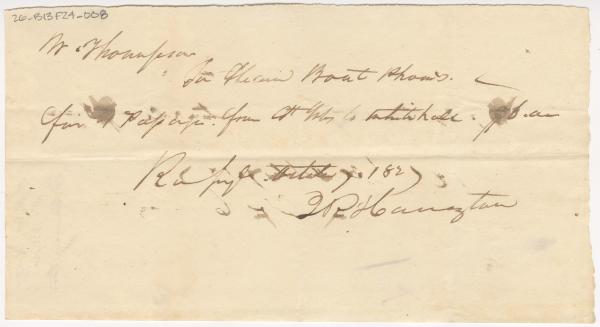 26-B13F24-008
Mr Thompson
To Steam Boat Phoenix
for Passage from St Johns to Whitehall. $6.00
Rec'd pay October 1827
J R Harrington